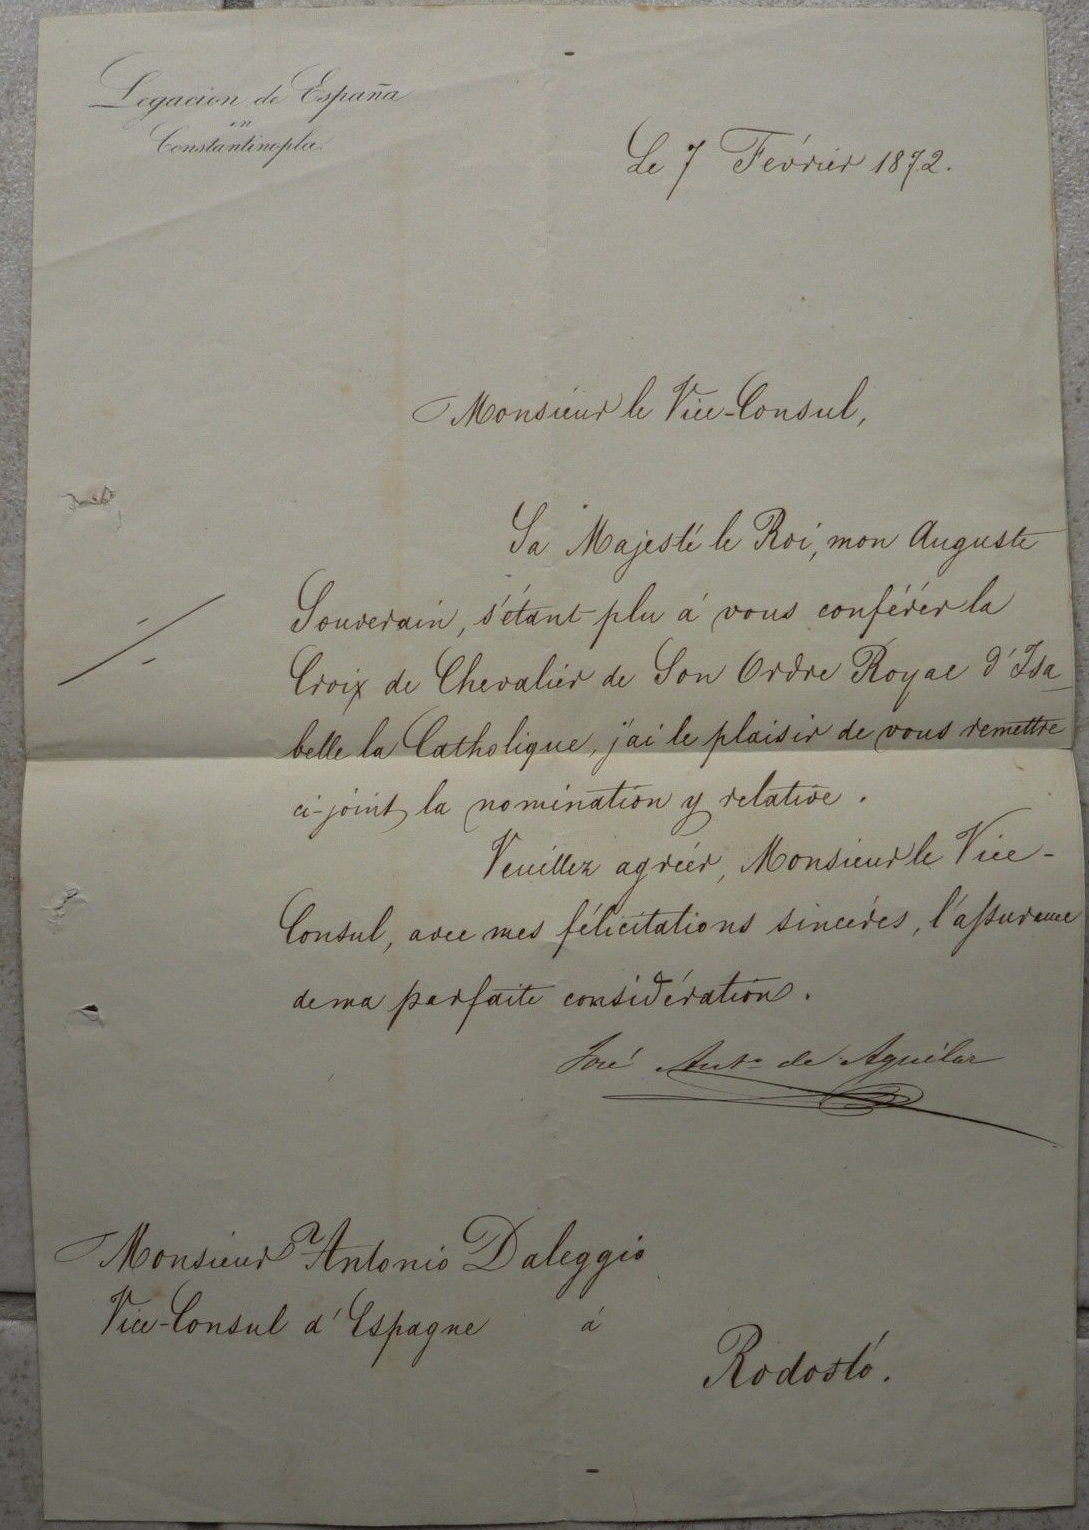 Legacion de España
en
Constantinopla.
Le 7 Février 1872.
Monsieur le Vice-Consul,
Sa Majesté le Roi, mon Auguste
Souverain, s'étant plu á vous conférér la
Croix de Chevalier de Son Ordre Royal d'Isa_
belle la Catholique, j'ai le plaisir de vous remettre
ci-joint la nomination y relative.
Veuillez agréer, Monsieur le Vice-
Consul, avec mes félicitations sincéres, l'assurance
de ma parfaite considération.
José Antº de Aguilar
Monsieur Antonio Daleggio
Vice-Consul d'Espagne á
Rodostó.